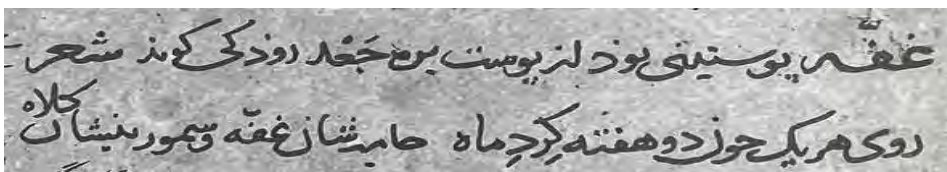 غفّه پوستینی بوذ از پوست بره جَعْد روذکی کویذ شعر
روی هر یک چون دو هفته کِردِ ماه جامه شان غفّه و سمورینشان کلاه